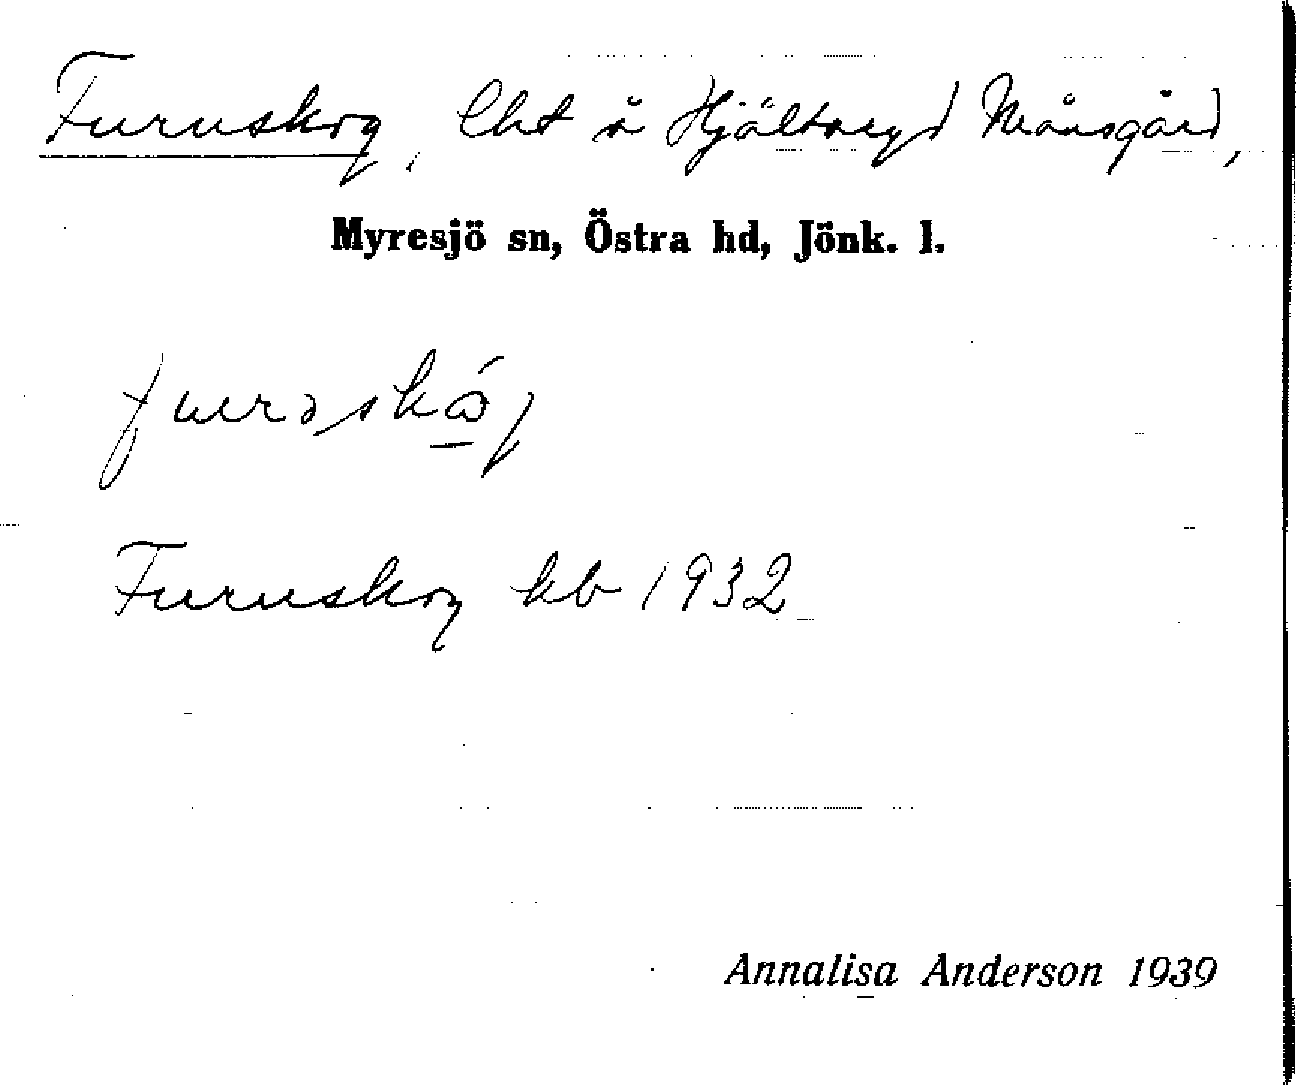 Furuskog, lht å Hjältaryd Månsgård,
Myresjö sn, Östra hd, Jönk. l.
Furuskog kb 1932
Annalisa Anderson 1939